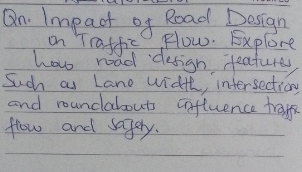 Qn. Impact of Road Design
on Traffic Flow. Explore
how road design features,
Such as Lane width, intersections,
and roundabouts influence traffic
flow and safety.